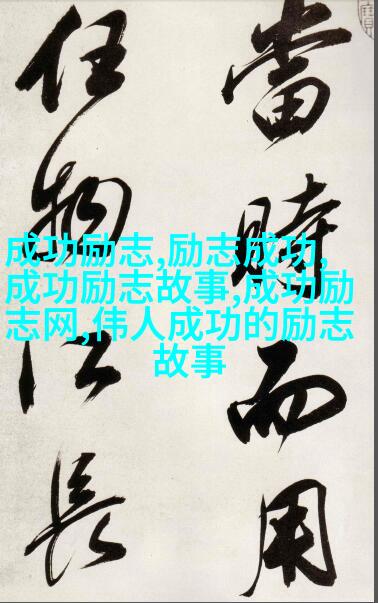 當時而用
任物以長
成功励志,励志成功,
成功励志故事,成功励
志网,伟人成功的励志
故事